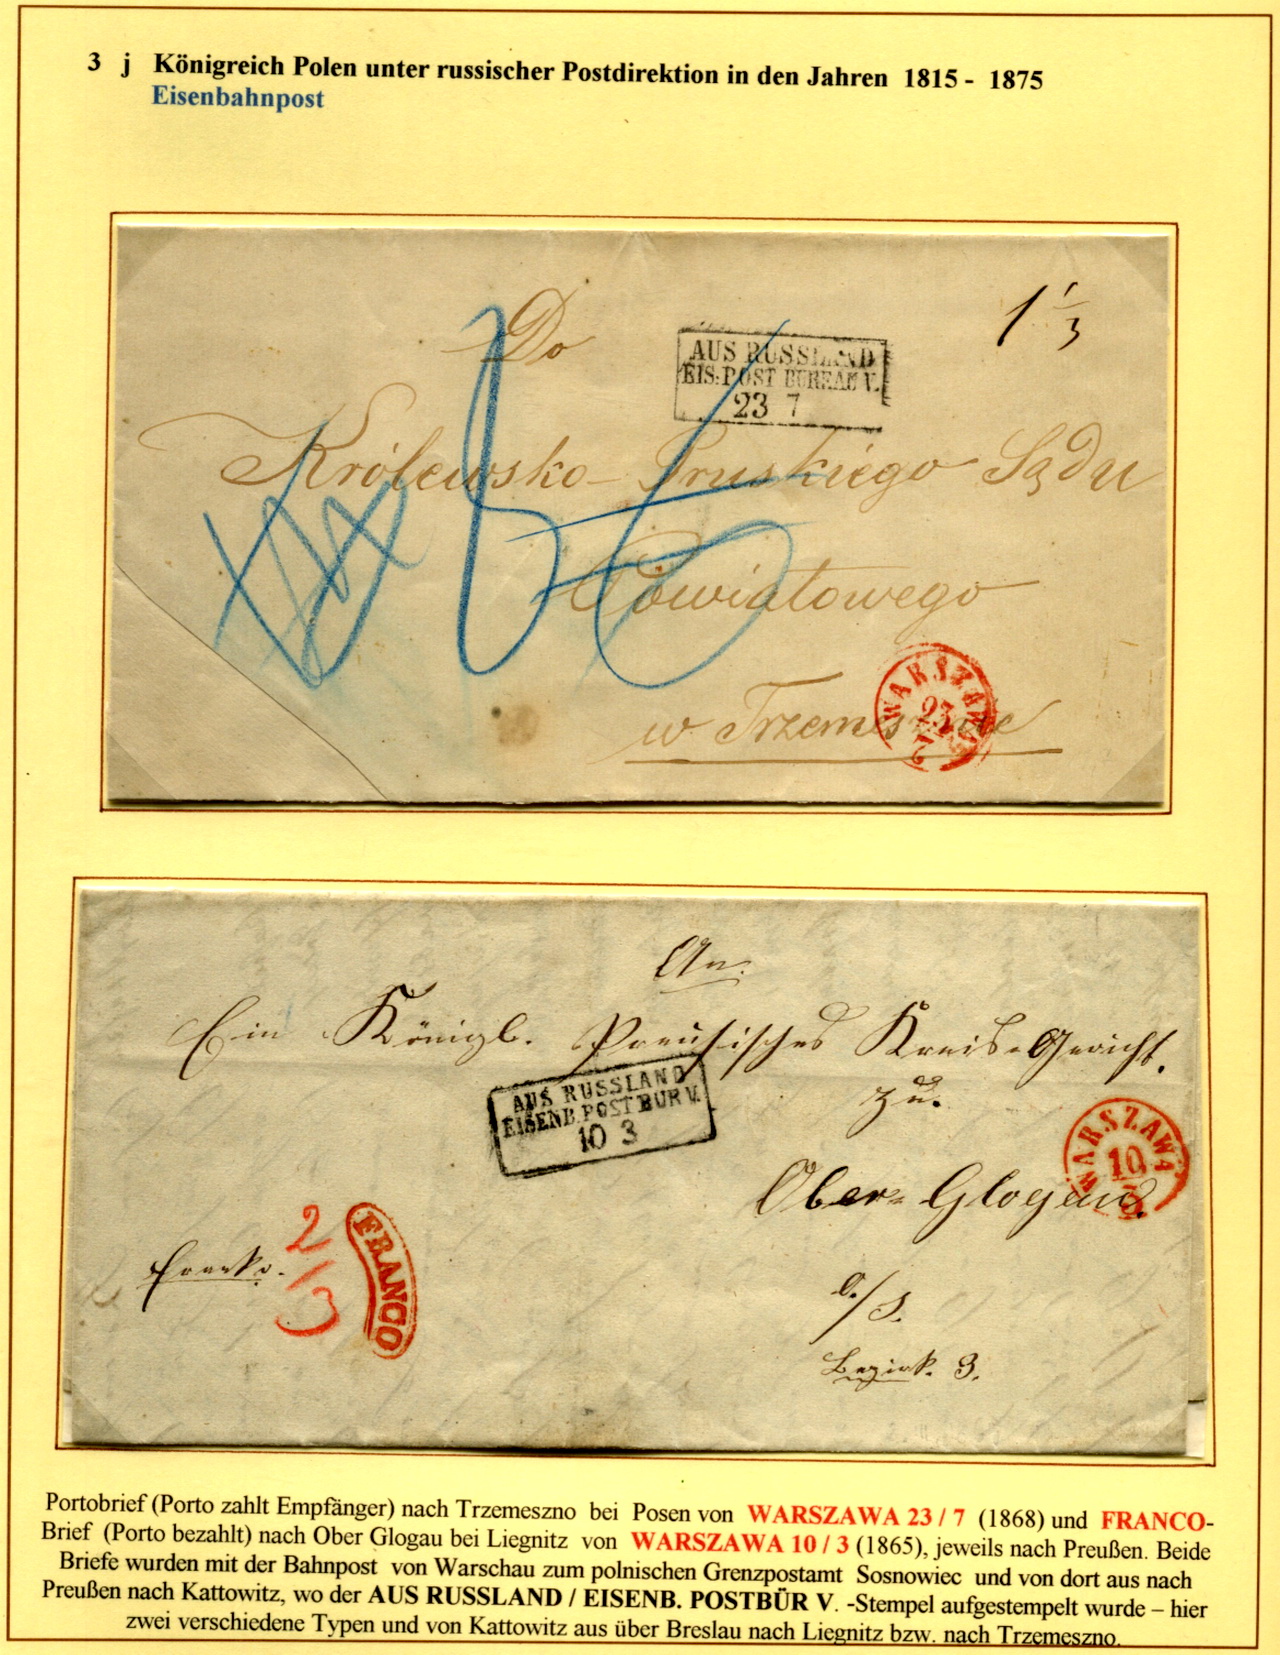 3 j Königreich Polen unter russischer Postdirektion in den Jahren 1815 - 1875
Eisenbahnpost
1 1/3
Do
AUS RUSSLAND
EIS: POST BUREAU V.
23 7
Królewsko - Pruskiego Sądu
Powiatowego
WARSZAWA
23
7
w Trzemesznie
An.
Ein Königl. Preußisches Kreis-Gericht.
zu.
AUS RUSSLAND
EISENB. POST BUR V.
10 3
WARSZAWA
10
3
Ober-Glogau.
2/3
FRANCO
Franko.
o./S.
Bezirk. 3.
Portobrief (Porto zahlt Empfänger) nach Trzemeszno bei Posen von WARSZAWA 23 / 7 (1868) und FRANCO-
Brief (Porto bezahlt) nach Ober Glogau bei Liegnitz von WARSZAWA 10 / 3 (1865), jeweils nach Preußen. Beide
Briefe wurden mit der Bahnpost von Warschau zum polnischen Grenzpostamt Sosnowiec und von dort aus nach
Preußen nach Kattowitz, wo der AUS RUSSLAND / EISENB. POSTBÜR V. -Stempel aufgestempelt wurde – hier
zwei verschiedene Typen und von Kattowitz aus über Breslau nach Liegnitz bzw. nach Trzemeszno.